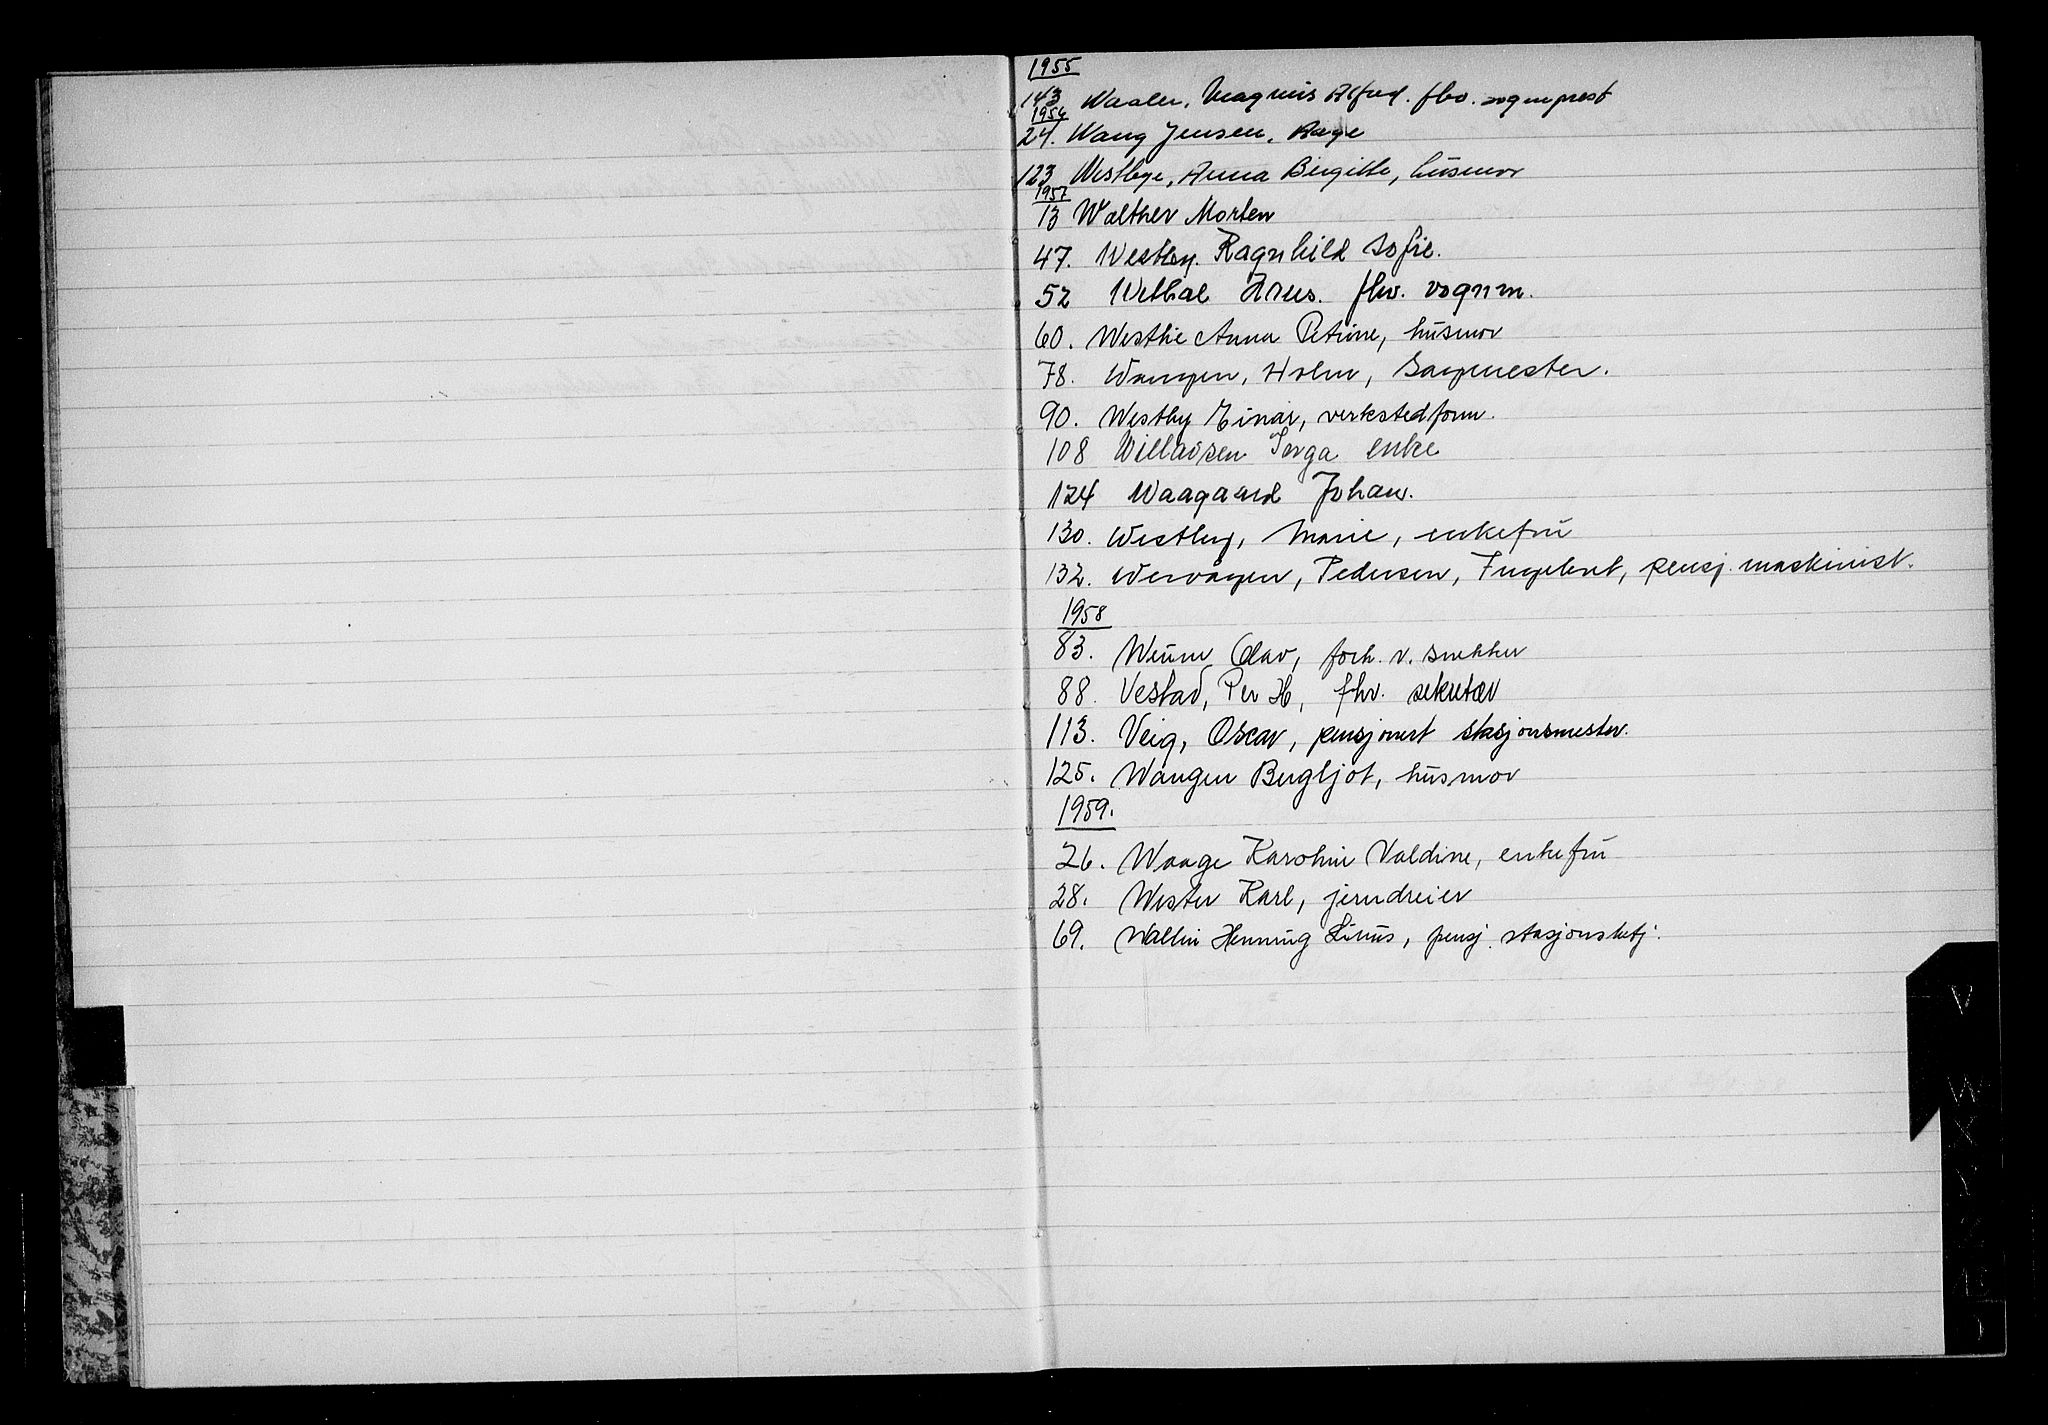 1955
143 Waaler, Magnus Alfred. fhv. sogneprest
1956
24. Wang Jensen, Aage
123 Westbye, Anna Birgitte, husmor
1957
13 Walther Morten
47. Westby. Ragnhild Sofie.
52 Wethal Arus. fhv. vognm.
60. Westlie Anna Petrine, husmor
78. Wangen, Holm, Sagmester.
90. Westby Einar, verkstedform.
108 Willadsen Inga enke
124 Waagaard Johan.
130. Westby, Marie, enkefru
132. Wervågen, Pedersen, Ingebret, pensj. maskinist.
1958
83. Weum Olav, forh. v. snekker
88. Vestad, Per H, fhv. sekretær
113. Veig, Oscar, pensjonert stasjonsmester.
125. Wangen Bergljot, husmor
1959.
26. Waage Karoline Valdine, enkefru
28. Wester Karl, jerndreier
69. Wallin Henning Linus, pensj. stasjonsbetj.
V
W
X